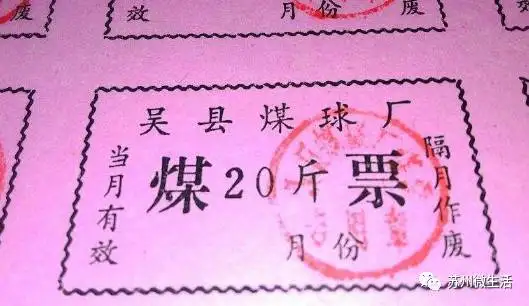 废
效
月份
废
效
吴县煤球厂
当月有效
煤20斤票
隔月作废
月份
苏州微生活